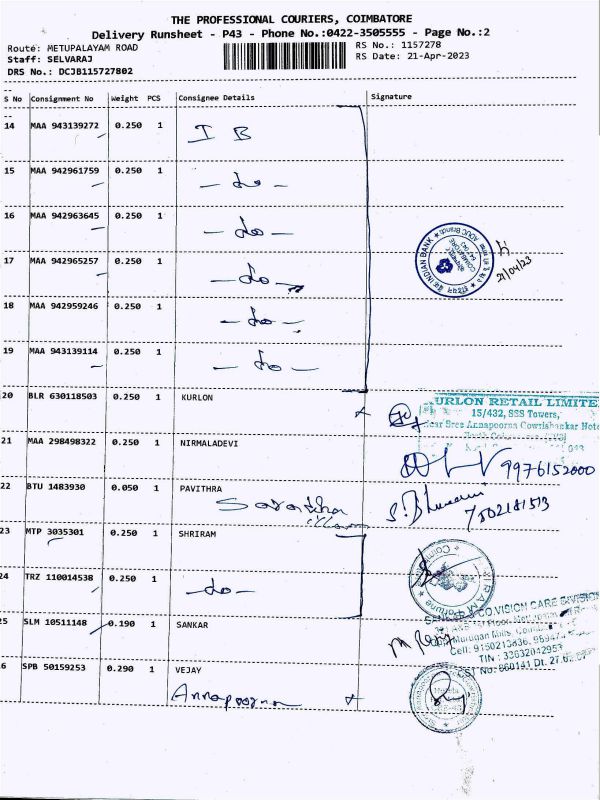 THE PROFESSIONAL COURIERS, COIMBATORE
Delivery Runsheet - P43 - Phone No.:0422-3505555 - Page No.:2
Route: METUPALAYAM ROAD RS No.: 1157278
Staff: SELVARAJ RS Date: 21-Apr-2023
DRS No.: DCJB115727802
S No Consignment No Weight PCS Consignee Details Signature
14 MAA 943139272 0.250 1 I B
15 MAA 942961759 0.250 1 - do -
16 MAA 942963645 0.250 1 - do -
INDIAN BANK
COIMBATORE
21/04/23
17 MAA 942965257 0.250 1 - do -
18 MAA 942959246 0.250 1 - do -
19 MAA 943139114 0.250 1 - do -
20 BLR 630118503 0.250 1 KURLON
URLON RETAIL LIMITE
15/432, SSS Towers,
ear Sree Annapoorna Gowrishankar Hote
21 MAA 298498322 0.250 1 NIRMALADEVI
9976152000
22 BTU 1483930 0.050 1 PAVITHRA
7502181513
23 MTP 3035301 0.250 1 SHRIRAM
24 TRZ 110014538 0.250 1 - do -
CO.VISION CARE DIVISION
25 SLM 10511148 0.190 1 SANKAR
Murugan Mills,
Cell: 9150213836,
TIN : 33632042953
CST No: 860141 Dt.
26 SPB 50159253 0.290 1 VEJAY
Annapoorna